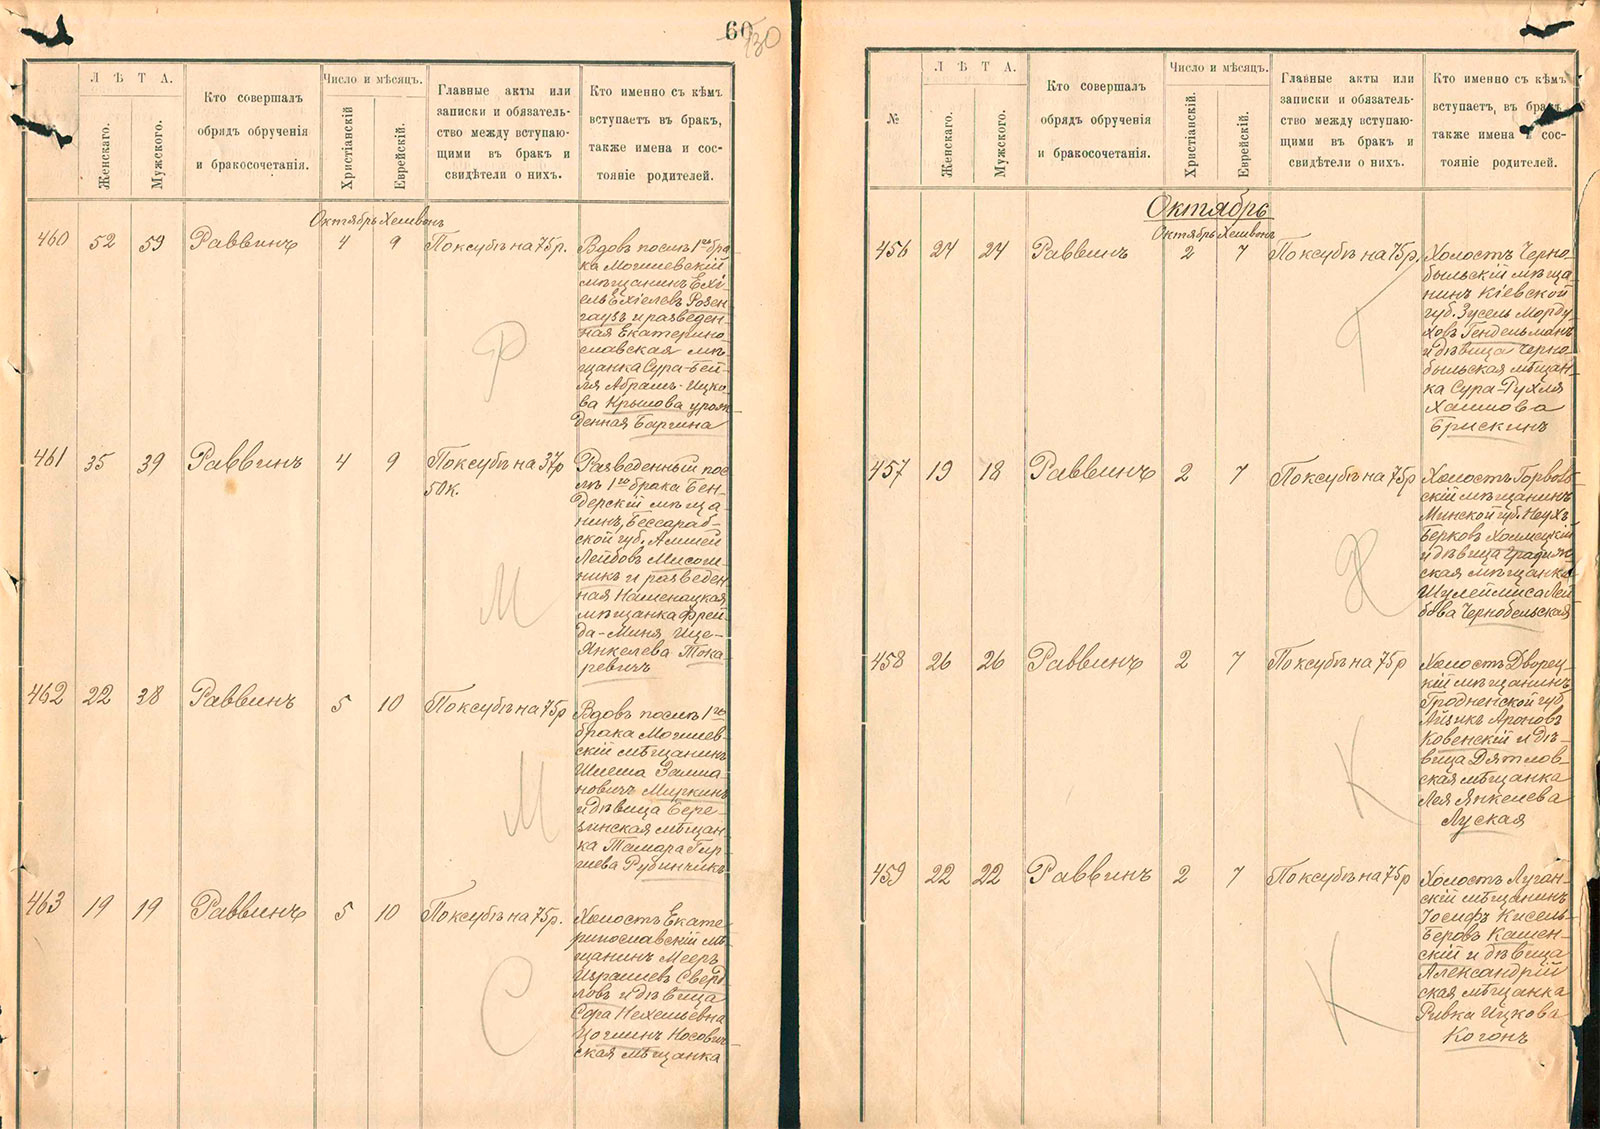 60
130
Л Ѣ Т А.
Женскаго.
Мужского.
Кто совершалъ
обрядъ обрученія
и бракосочетанія.
Число и мѣсяцъ.
Христіанскій
Еврейскій.
Главные акты или
записки и обязатель-
ство между вступаю-
щими въ бракъ и
свидѣтели о нихъ.
Кто именно съ кѣмъ
вступаетъ въ бракъ,
также имена и сос-
тояніе родителей.
Октябрь Хешвонъ
460 52 59 Раввинъ 4 9 По ксубѣ на 75 р.
Вдовъ послѣ 1го бра
ка Могилевскій
мѣщанинъ Ехі-
ель Ехіелевъ Розен-
гаузъ и разведен-
ная Екатерино-
славская мѣ-
щанка Сура-Бей-
ля Абрамъ-Ицко-
ва Крымова урож-
денная Баргина
Р
461 35 39 Раввинъ 4 9 По ксубѣ на 37р
50к.
Разведенный пос
лѣ 1го брака Бен-
дерскій мѣща-
нинъ, Бессараб-
ской губ.
Лейбовъ
и разведен
ная
мѣщанка Фрей-
да-Миня Ице-
Янкелева Тока-
ревичъ
М
462 22 38 Раввинъ 5 10 По ксубѣ на 75р
Вдовъ послѣ 1го
брака Могилев-
скій мѣщанинъ
Шлема Залма-
новичъ
и дѣвица Бере-
зинская мѣщан-
ка Тамара Гир-
шева Рубинчикъ
М
463 19 19 Раввинъ 5 10 По ксубѣ на 75р.
Холостъ Екате-
ринославскій мѣ-
щанинъ Мееръ
Израилевъ Сверд
ловъ и дѣвица
Сора
Носович-
ская мѣщанка
С
№
Л Ѣ Т А.
Женскаго.
Мужского.
Кто совершалъ
обрядъ обрученія
и бракосочетанія.
Число и мѣсяцъ.
Христіанскій.
Еврейскій.
Главные акты или
записки и обязатель-
ство между вступаю-
щими въ бракъ и
свидѣтели о нихъ.
Кто именно съ кѣмъ
вступаетъ, въ бракъ
также имена и сос-
тояніе родителей.
Октябрь
Октябрь Хешвонъ
456 24 24 Раввинъ 2 7 По ксубѣ на 75р.
Холостъ Черно-
быльскій мѣща
нинъ Кіевской
губ. Зусель Морду
ховъ Гендельманъ
и дѣвица Черно-
быльская мѣщан-
ка Сура-Рухля
Хаимова
Брискинъ
Г
457 19 18 Раввинъ 2 7 По ксубѣ на 75р
Холостъ Горволь-
скій мѣщанинъ
Минской губ. Неухъ
Берковъ Холмецкій
и дѣвица
ская мѣщанка
Лей-
бова Чернобельская
Х
458 26 26 Раввинъ 2 7 По ксубѣ на 75р
Холостъ Дворец-
кій мѣщанинъ
Гродненской губ.
Айзикъ Ароновъ
Ковенскій и дѣ-
вица Дятлов-
ская мѣщанка
Лея Янкелева
Луская
К
459 22 22 Раввинъ 2 7 По ксубѣ на 75р
Холостъ Луган-
скій мѣщанинъ
Іосифъ Кисель-
Беровъ Камен-
скій и дѣвица
Александрій
ская мѣщанка
Ривка Ицкова
Когонъ
К